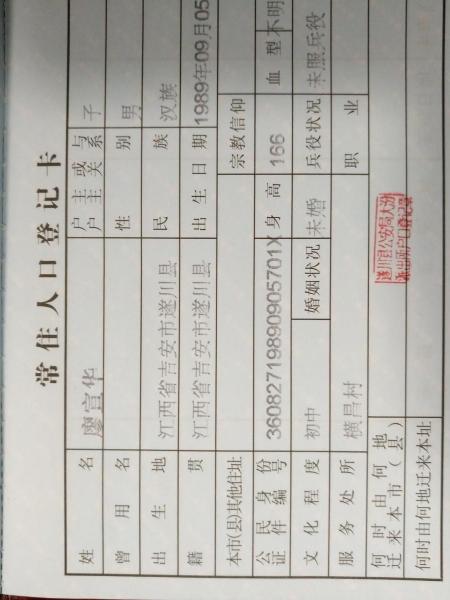 常住人口登记卡
姓名 廖宣华 户主或与户主关系 子
曾用名 性别 男
出生地 江西省吉安市遂川县 民族 汉族
籍贯 江西省吉安市遂川县 出生日期 1989年09月05
本市(县)其他住址 宗教信仰
公民身份证件编号 36082719890905701X 身高 166 血型 不明
文化程度 初中 婚姻状况 未婚 兵役状况 未服兵役
服务处所 横昌村 职业
何时由何地迁来本市(县)
何时由何地迁来本址
遂川县公安局大汾
派出所户口登记章